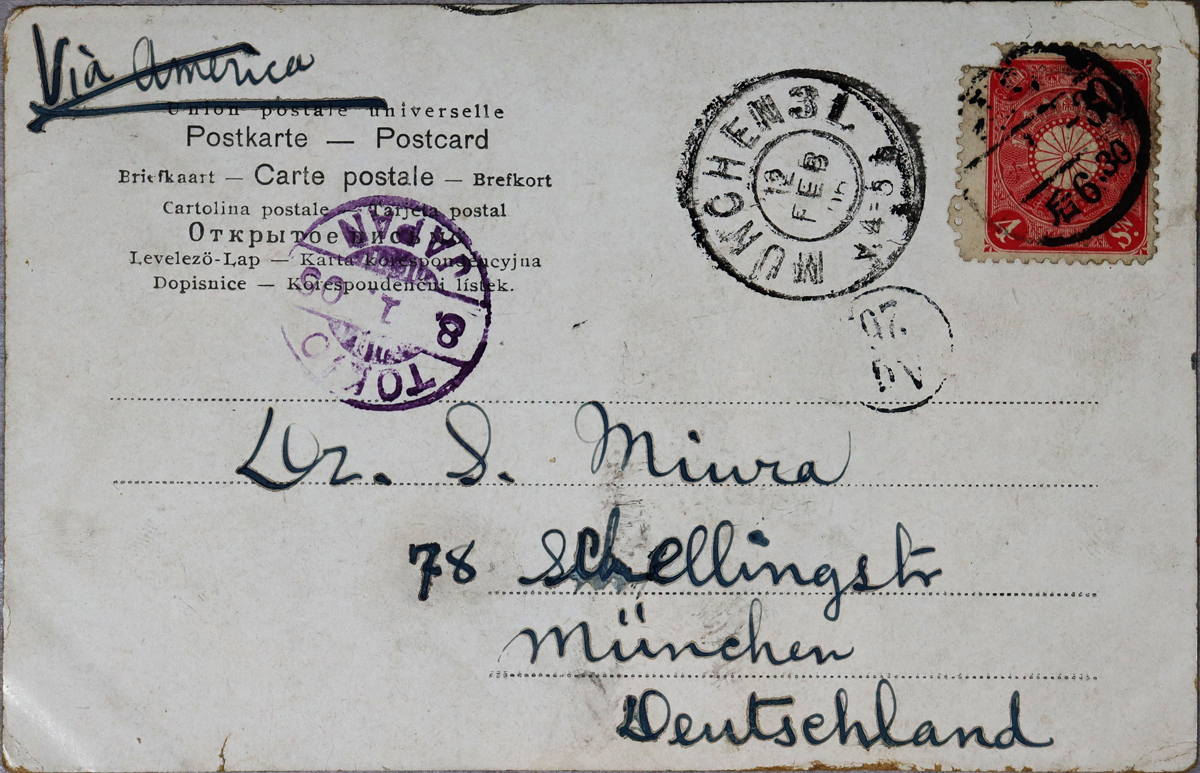 Vià America
Union postale universelle
Postkarte — Postcard
Briefkaart — Carte postale — Brefkort
Cartolina postale — Tarjeta postal
Открытое письмо
Levelező-Lap — Karta korespondencyjna
Dopisnice — Korespondenčni lístek.
TOKIO JAPAN
8.
MÜNCHEN 31
12
FEB
4-5
后6.30
4 Sɴ.
20
Dr. S. Miura
78 Schellingstr
München
Deutschland